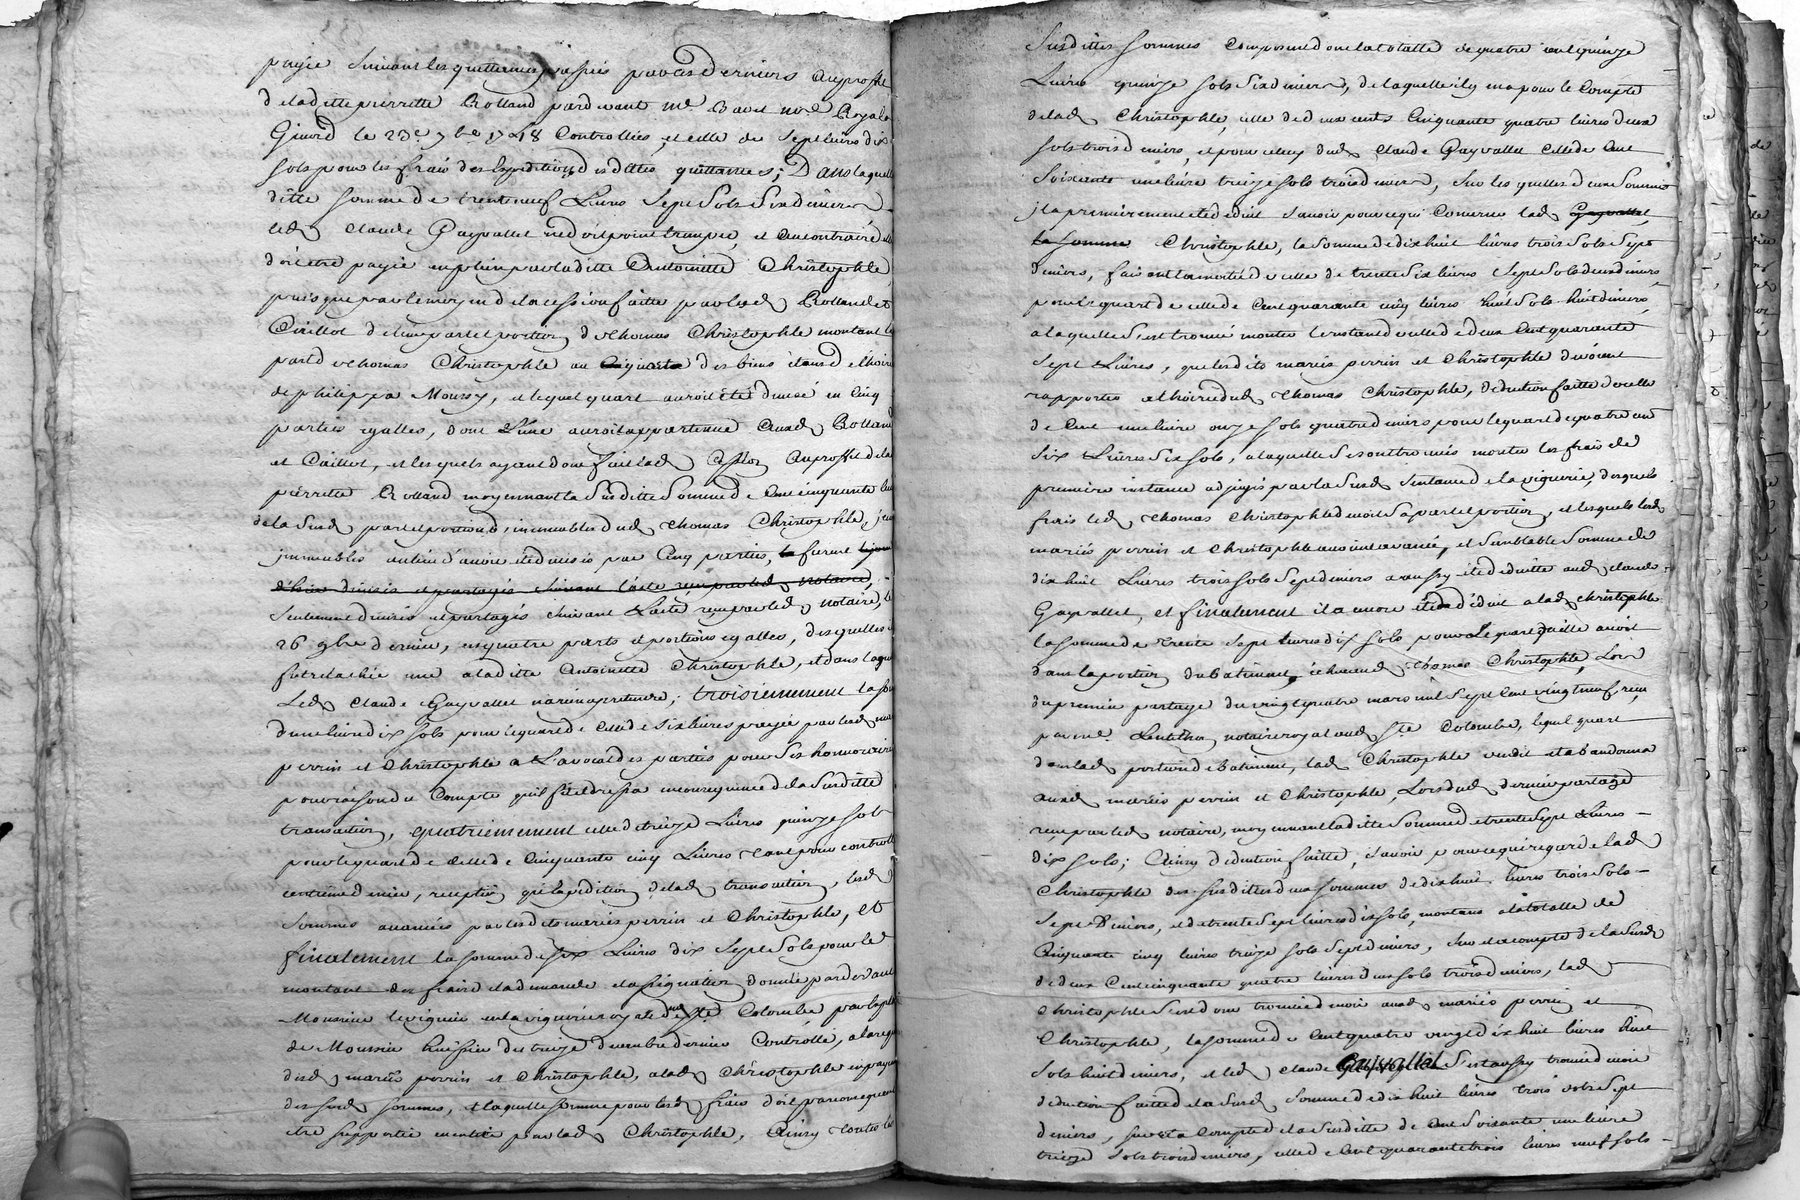 payée suivant les quittances passées par ces derniers au proffit
de laditte pierrette Rolland pardevant me. Bavet nore. Royal a
Givord le 23e. 7bre 1748 Controllées, et celle de sept livres dix
sols pour les frais des Expeditions desdittes quittances; Dans laquelle
ditte somme de trente neuf Livres sept sols six deniers
led. Claude Gayvallet ne doit point tremper, et au contraire elle
doit etre payée en plein par laditte Antoinette Christophle,
puisque par le moyen de la cession faitte par lesd. Rolland et
Caillot de leur part et portion de thomas Christophle montant la
part de thomas Christophle au quart des biens étans de l'hoirie
de philippa Moussy, et lequel quart auroit été divisé en Cinq
parties egalles, dont l'une auroit appartenue Auxd. Rolland
et Caillot, et lesquels ayant donc fait lad. cession Au proffit de lad.
pierrette Rolland moyennant la susditte somme de Cent cinquante livres
de la susd. part et portion des immeubles dud. thomas Christophle,
immeubles au lieu d'avoir été divisés par Cinq parties, la furent
divisés et partagés suivant l'acte reçu par led. notaire,
seulement divisés et partagés suivant L'acte reçu par led. notaire, le
26 9bre dernier, en quatre parts et portions egalles, desquelles
fut relachée une a laditte Antoinette Christophle, et dans laquelle
Led. Claude Gayvallet n'a rien a pretendre; troisiemement la somme
d'une livre dix sols pour le quart de Celle de six livres payée par lesd. mariés
perrin et Christophle a L'avocat des parties pour ses honnoraires
pour raison du Compte qu'il fit dressa en consequence de la susditte
transaction, quatriemement celle de treize Livres quinze sols
pour le quart de Celle de Cinquante cinq Livres tant pour controlle
centieme denier, reception qu'expedition de lad. transaction, lesd.
sommes avancées par lesdits mariés perrin et Christophle, et
finalement la somme de six Livres dix sept sols pour le
montant des frais de la demande et assignation donnée pardevant
Monsieur le viguier en la viguerie royale de Ste. Colombe par exploit
de Moussier huissier du treize decembre dernier Controllé, a la requete
desd. mariés perrin et Christophle, a lad. Christophle en payement
des susd. sommes, et laquelle somme pour lesd. frais doit par consequent
etre supportée en entier par lad. Christophle, Ainsy toutes les
susdittes sommes Composent donc la totalle de quatre cent quinze
Livres quinze sols six deniers, de laquelle il y en a pour le Compte
de lad. Christophle, celle de deux cents Cinquante quatre livres deux
sols trois deniers, et pour celuy dud. Claude Gayvallet Celle de Cent
soixante une livre treize sols trois deniers, sur lesquelles deux sommes
il a premierement été deduit savoir pour ce qui Concerne lad. Gayvallet
la somme Christophle, la somme de dix huit livres trois sols sept
deniers, faisant la moitié de celle de trente six livres sept sols deux deniers
pour le quart de celle de Cent quarante cinq livres huit sols huit deniers,
a laquelle s'est trouvé monter le restant de celle de deux Cent quarante
sept Livres, que lesdits mariés perrin et Christophle devoient
rapporter a l'hoirie dud. thomas Christophle, deduction faitte d'icelle
de Cent une livre onze sols quatre deniers pour le quart de quatre cent
six Livres six sols, a laquelle se sont trouvés monter les frais de
premiere instance adjugés par la susd. sentence de la viguerie, desquels
frais led. thomas Christophle devoit sa part et portion, et lesquels lesd.
mariés perrin et Christophle avoient avancé, et semblable somme de
dix huit Livres trois sols sept deniers a aussy été deduitte aud. claude
Gayvallet, et finalement il a encore été deduit a lad. christophle
la somme de trente sept livres dix sols pour le quart qu'elle avoit
dans la portion du batiment échue aud. thomas Christophle, Lors
du premier partage du vingt quatre mars mil sept cent vingt neuf, reçu
par me. Lentillon notaire royal aud. Ste Colombe, lequel quart
dans lad. portion de batiment, lad. Christophle vendit et abandonna
auxd. mariés perrin et Christophle, Lors dud. dernier partage
reçu par led. notaire, moyennant laditte somme de trente sept Livres
dix sols; Ainsy deduction faitte, savoir pour ce qui regarde lad.
Christophle des susdittes deux sommes de dix huit livres trois sols
sept Deniers, et de trente sept livres dix sols, montans a la totalle de
Cinquante cinq livres treize sols sept deniers, sur et a compte de la susd.
de deux Cent cinquante quatre livres deux sols trois deniers, lad.
Christophle s'est donc trouvée devoir auxd. mariés perrin et
Christophle, la somme de Cent quatre vingt dix huit livres huit
sols huit deniers, et led. Claude Gayvallet s'est aussy trouvé devoir
deduction faitte de la susd. somme de dix huit livres trois sols sept
deniers, sur et a Compte de la susditte de Cent soixante une livre
treize sols trois deniers, celle de Cent quarante trois livres neuf sols